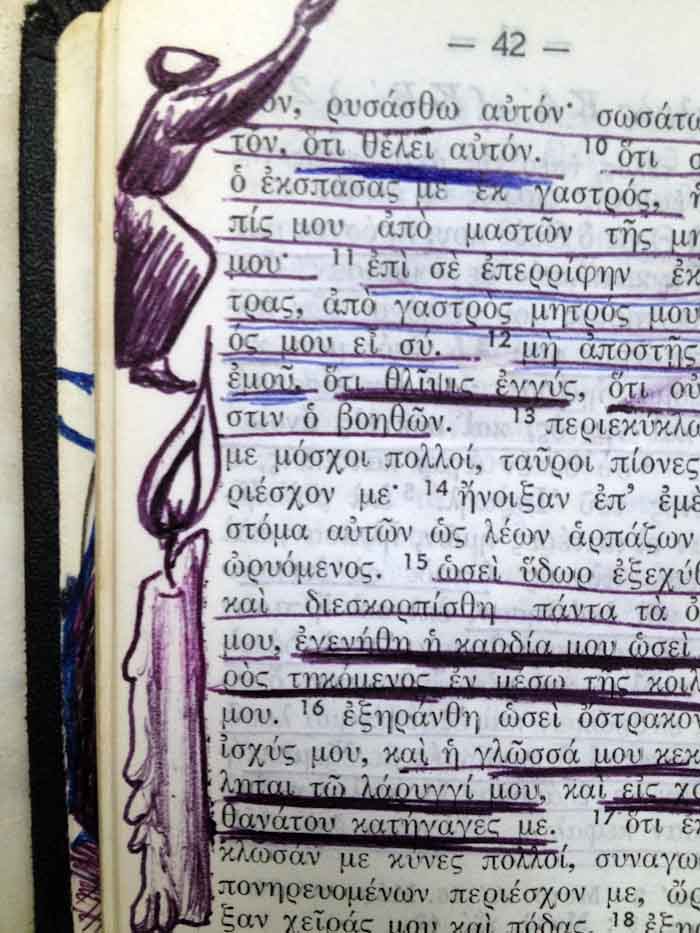 — 42 —
ον, ρυσάσθω αὐτόν· σωσάτω
τόν, ὅτι θέλει αὐτόν. 10 ὅτι σ
ὁ ἐκσπάσας με ἐκ γαστρός, ἡ
πίς μου ἀπὸ μαστῶν τῆς μη
μου· 11 ἐπὶ σὲ ἐπερρίφην ἐκ
τρας, ἀπὸ γαστρὸς μητρός μου
ός μου εἶ σύ. 12 μὴ ἀποστῇς
ἐμοῦ, ὅτι θλῖψις ἐγγύς, ὅτι οὐ
στιν ὁ βοηθῶν. 13 περιεκύκλω
με μόσχοι πολλοί, ταῦροι πίονες
ριέσχον με· 14 ἤνοιξαν ἐπ’ ἐμὲ
στόμα αὐτῶν ὡς λέων ἁρπάζων
ὠρυόμενος. 15 ὡσεὶ ὕδωρ ἐξεχύθ
καὶ διεσκορπίσθη πάντα τὰ ὀ
μου, ἐγενήθη ἡ καρδία μου ὡσεὶ
ρὸς τηκόμενος ἐν μέσῳ τῆς κοιλ
μου. 16 ἐξηράνθη ὡσεὶ ὄστρακο
ἰσχύς μου, καὶ ἡ γλῶσσά μου κεκ
ληται τῷ λάρυγγί μου, καὶ εἰς χο
θανάτου κατήγαγές με. 17 ὅτι ἐ
κλωσάν με κύνες πολλοί, συναγω
πονηρευομένων περιέσχον με, ὤρ
ξαν χεῖράς μου καὶ πόδας. 18 ἐξη